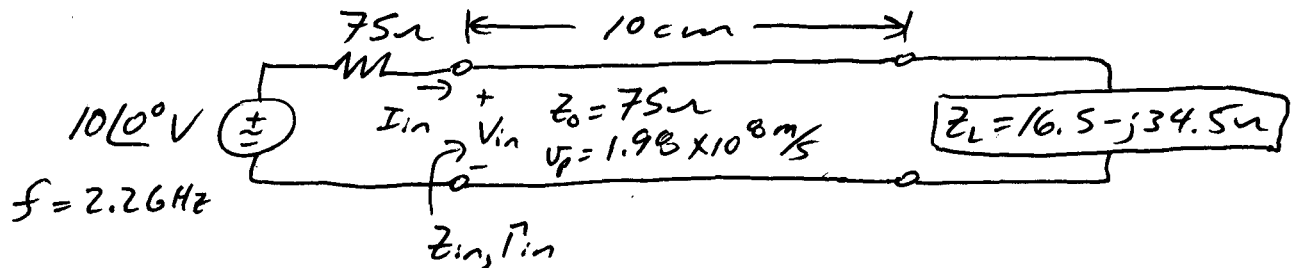 75Ω |← 10cm →|
10∠0° V
I_in → + V_in −
Z₀ = 75Ω
v_p = 1.98 × 10⁸ m/s
Z_L = 16.5 - j34.5Ω
f = 2.2GHz
Z_in, Γ_in